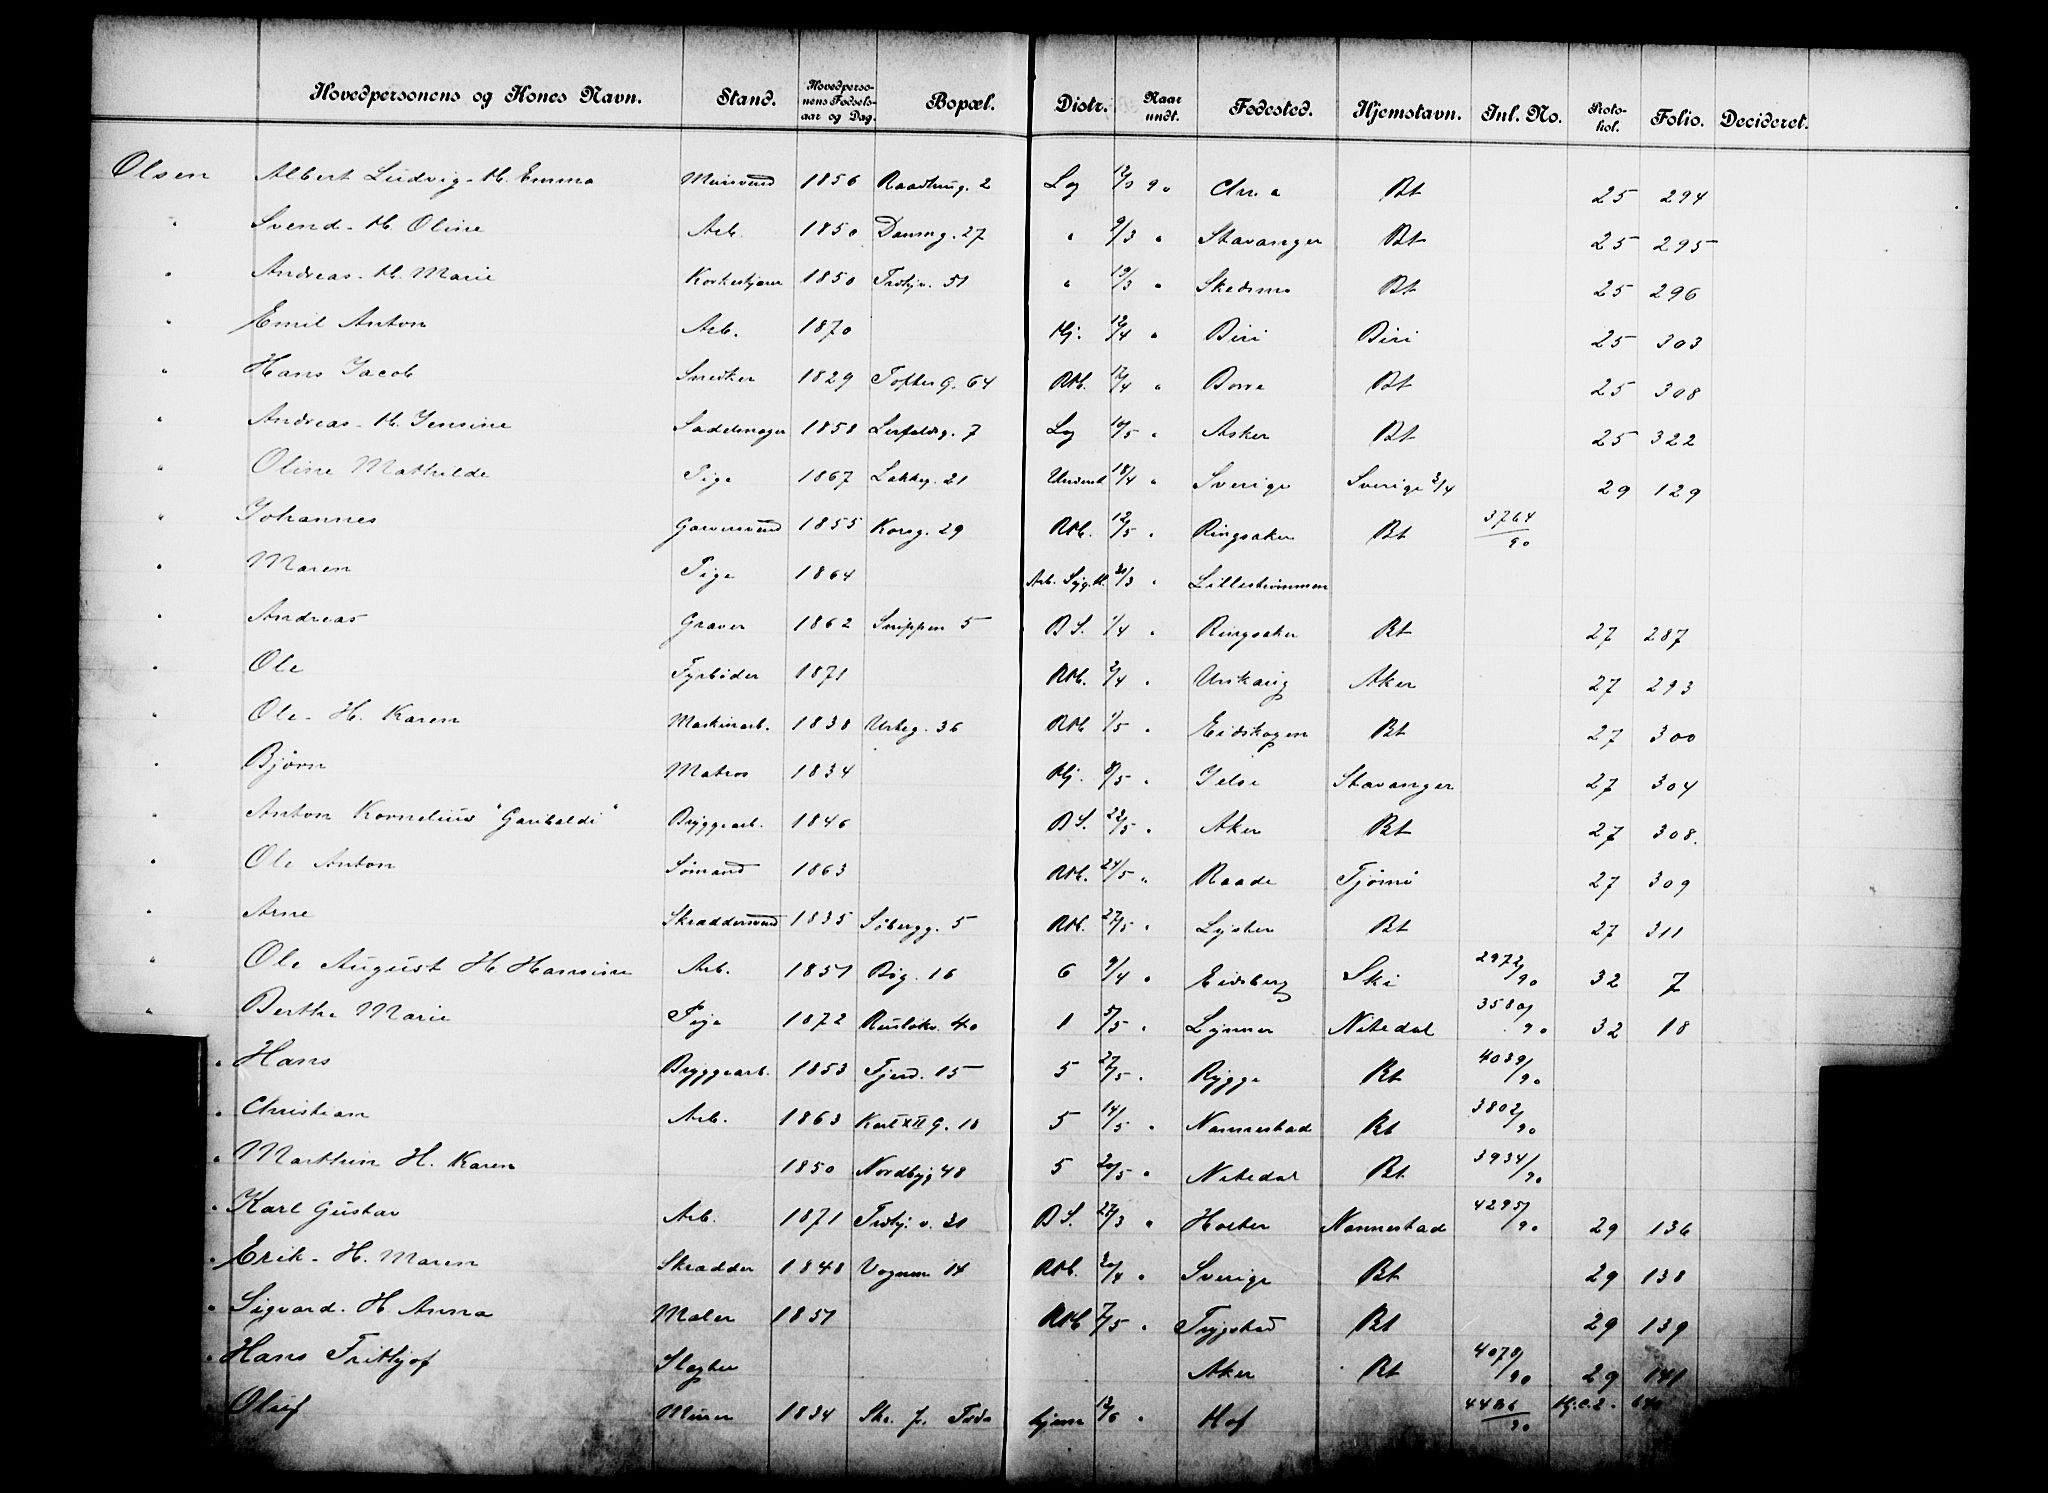 Hovedpersonens og Kones Navn. Stand. Hovedperso-nens Fødsels-aar og Dag. Bopæl. Distr. Naar undt. Fødested. Hjemstavn. Inl. No. Proto-kol. Folio. Decideret.
Olsen Albert Ludvig - H. Emma Murs­vend 1856 Raadhusg. 2 Lg 12/3 90 Chr. a Bt 25 294
" Svend - H. Oline Arb. 1850 Dannig. 27 " 9/3 " Stavanger Bt 25 295
" Andreas - H. Marie 1850 Trthjv. 51 " 19/3 " Skedsmo Bt 25 296
" Emil Anton Arb. 1870 Hj. 12/4 " Biri Biri 25 303
" Hans Jacob Snedker 1829 Tofteg. 64 RM. 12/4 " Borre Bt 25 308
" Andreas - H. Jensine Sadelmager 1858 Lerfaldsg. 7 Lg 10/5 " Asker Bt 25 322
" Oline Mathilde Pige 1867 Lakkeg. 21 Underst 18/4 " Sverige Sverige 3/4 29 129
" Johannes Garversvend 1855 Korsg. 29 RM. 12/5 " Ringsaker Bt 3764/90
" Maren Pige 1864 Arb. Syg. H. 31/3 " Lillestrømmen
" Andreas Graver 1862 Snippen 5 B S. 1/4 " Ringsaker Bt 27 287
" Ole Fyrbøder 1871 RM. 2/4 " Urskoug Aker 27 293
" Ole - H. Karen Maskinarb. 1838 Urteg. 36 RM 1/5 " Eidskogen Bt 27 300
" Bjørn Matros 1834 Hj. 8/5 " Jelse Stavanger 27 304
" Anton Kornelius "Garibaldi" Bryggearb. 1846 B S. 22/5 " Aker Bt 27 308.
" Ole Anton Sømand 1863 RM. 24/5 " Raade Tjømø 27 309
" Arne Skræddersvend 1835 Søbergg. 5 RM. 27/5 " Lyster Bt 27 311
" Ole August H. Hansine Arb. 1851 Bøg. 16 6 9/4 " Eidsberg Ski 2972/90 32 7
" Berthe Marie Pige 1872 Ruseløkv. 40 1 5/5 " Lynner Nitedal 3580/90 32 18
" Hans Bryggearb. 1853 Fjerd. 15 5 27/5 " Rygge Bt 4039/90
" Christian Arb. 1863 Karl XII G. 18 5 14/5 " Nannestad Bt 3802/90
" Marthin H. Karen 1850 Nordbyg 48 5 20/5 " Nitedal Bt 3934/90
" Karl Gustav Arb. 1871 Trthj. v. 31 B S. 28/3 " Holter Nannestad 4295/90 29 136
" Erik - H. Maren Skrædder 1848 Vognm 14 RM. 30/4 " Sverige Bt 29 138
" Sigvard - H. Anna Maler 1851 RM 7/5 " Trygstad Bt 29 139
" Hans Frithjof Slagter Aker Bt 4070/90 29 141
" Oluf Murer 1834 Hjem 12/6 " Hof 4486/90